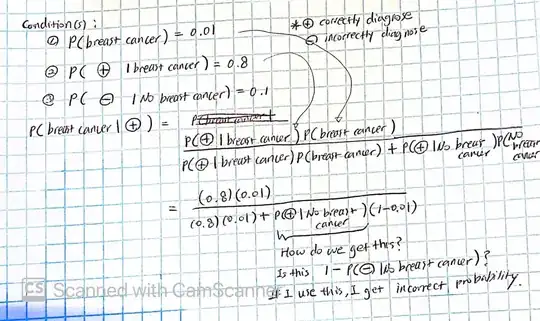 Condition(s):
① P(breast cancer) = 0.01
② P( ⊕ | breast cancer) = 0.8
③ P( ⊖ | No breast cancer) = 0.1
* ⊕ correctly diagnose
⊖ incorrectly diagnose
P(breast cancer | ⊕) = P(⊕ | breast cancer) P(breast cancer)
P(⊕ | breast cancer) P(breast cancer) + P(⊕ | No breast cancer) P(No breast cancer)
= (0.8)(0.01)
(0.8)(0.01) + P(⊕ | No breast cancer)(1-0.01)
How do we get this?
Is this 1 - P(⊖ | No breast cancer)?
If I use this, I get incorrect probability.
CS Scanned with CamScanner